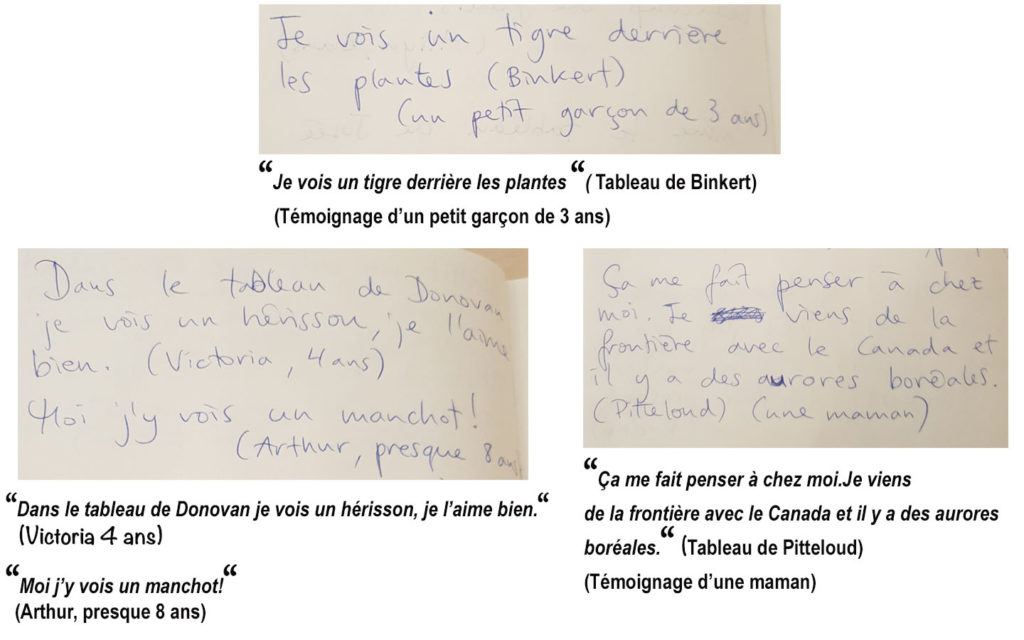 Je vois un tigre derrière
les plantes (Binkert)
(un petit garçon de 3 ans)
“Je vois un tigre derrière les plantes“ ( Tableau de Binkert)
(Témoignage d’un petit garçon de 3 ans)
Dans le tableau de Donovan
je vois un hérisson, je l'aime
bien. (Victoria, 4 ans)
Moi j'y vois un manchot!
(Arthur, presque 8 ans)
“Dans le tableau de Donovan je vois un hérisson, je l’aime bien.“
(Victoria 4 ans)
“Moi j’y vois un manchot!“
(Arthur, presque 8 ans)
Ça me fait penser à chez
moi. Je viens de la
frontière avec le Canada et
il y a des aurores boréales.
(Pitteloud) (une maman)
“Ça me fait penser à chez moi.Je viens
de la frontière avec le Canada et il y a des aurores
boréales.“ (Tableau de Pitteloud)
(Témoignage d’une maman)